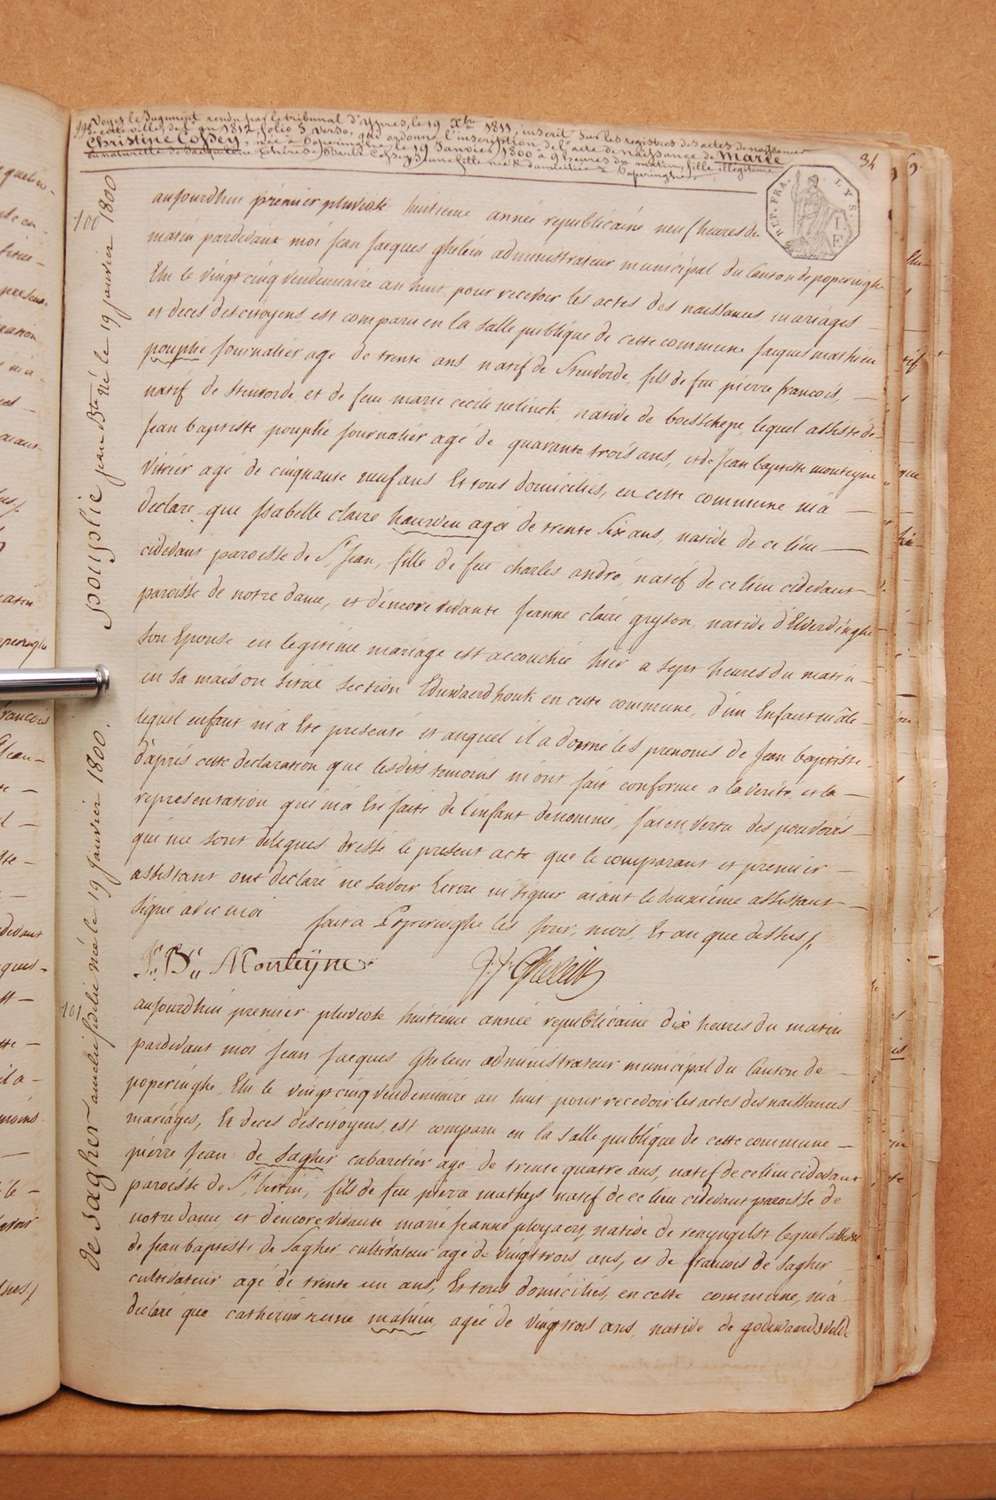 Voyez le Jugement rendu par le tribunal d'Ypres, le 19 Xbre 1811, inscrit sur les registres des actes de naissance
de cette ville, de l'an 1812, folio 3 verso, qui ordonne l'inscription de l'acte de naissance de Marie
Christine Cossey, née à Poperinghe, le 19 Janvier 1800 à 9 heures du matin, fille illégitime
34
REP. FRA.
LYS
100
pouplie jean Bte né le 19 janvier 1800
aujourdhui premier pluviose huitieme année republicaine neuf heures du
matin pardevant moi Jean Jacques Ghelein administrateur municipal du Canton de poperinghe
Elu le vingt cinq vendemiaire an huit pour recevoir les actes des naissances mariages
et deces des citoyens est comparu en la salle publique de cette commune Jacques mathieu
pouplie journalier age de trente ans natif de Steuvorde, fils de feu pierre francois
natif de Steuvorde et de feu marie cecile nelinck, native de boesschepe, lequel assisté de
Jean baptiste pouplie journalier agé de quarante trois ans, et de Jean baptiste monteyne
vitrier agé de cinquante neuf ans Et tous domiciliés, en cette commune m'a
declaré que Isabelle claire haurdeu agée de trente six ans, native de ce lieu
cidevant paroisse de St Jean, fille de feu charles andré, natif de ce lieu cidevant
paroisse de notre dame, et d'encore vivante Jeanne claire gryson, native d'Elverdinghe
son Epouse en legitime mariage est accouchée hier a sept heures du matin
en sa maison située section Eduwaerdhouk en cette commune, d'un Enfant mâle
lequel enfant m'a Eté presenté et auquel il a donné les prenoms de Jean baptiste.
d'aprés cette declaration que lesdits temoins m'ont fait conforme a la verité, et la
representation qui m'a Eté faite de l'enfant denommé, j'ai en vertu des pouvoirs
qui me sont delegués dressé le present acte que le comparant et premier
assistant ont declaré ne savoir Ecrire ni signer aiant le deuxième assistant
signé avec moi
fait a Poperinghe les jour, mois, Et an que dessus.
Jn. Bte. Monteÿne
J. J. Ghelein
101
de sagher amelie fidelie née le 19 janvier 1800.
aujourdhui premier pluviose huitieme année republicaine dix heures du matin
pardevant moi Jean Jacques Ghelein administrateur municipal du Canton de
poperinghe, Elu le vingt cinq vendemiaire an huit pour recevoir les actes des naissances
mariages, Et deces des citoyens, est comparu en la salle publique de cette commune
pierre Jean de Sagher cabaretier agé de trente quatre ans, natif de ce lieu cidevant
paroisse de St bertin, fils de feu pierre mathys natif de ce lieu cidevant paroisse de
notre dame, et d'encore vivante marie Jeanne ployaert, native de renyngelst lequel assisté
de Jean baptiste de Sagher cultivateur agé de vingt trois ans, et de francois de Sagher
cultivateur agé de trente un ans, Et tous domiciliés, en cette commune, m'a
declaré que catherine reine mahieu agée de vingt trois ans, native de godewaersvelde